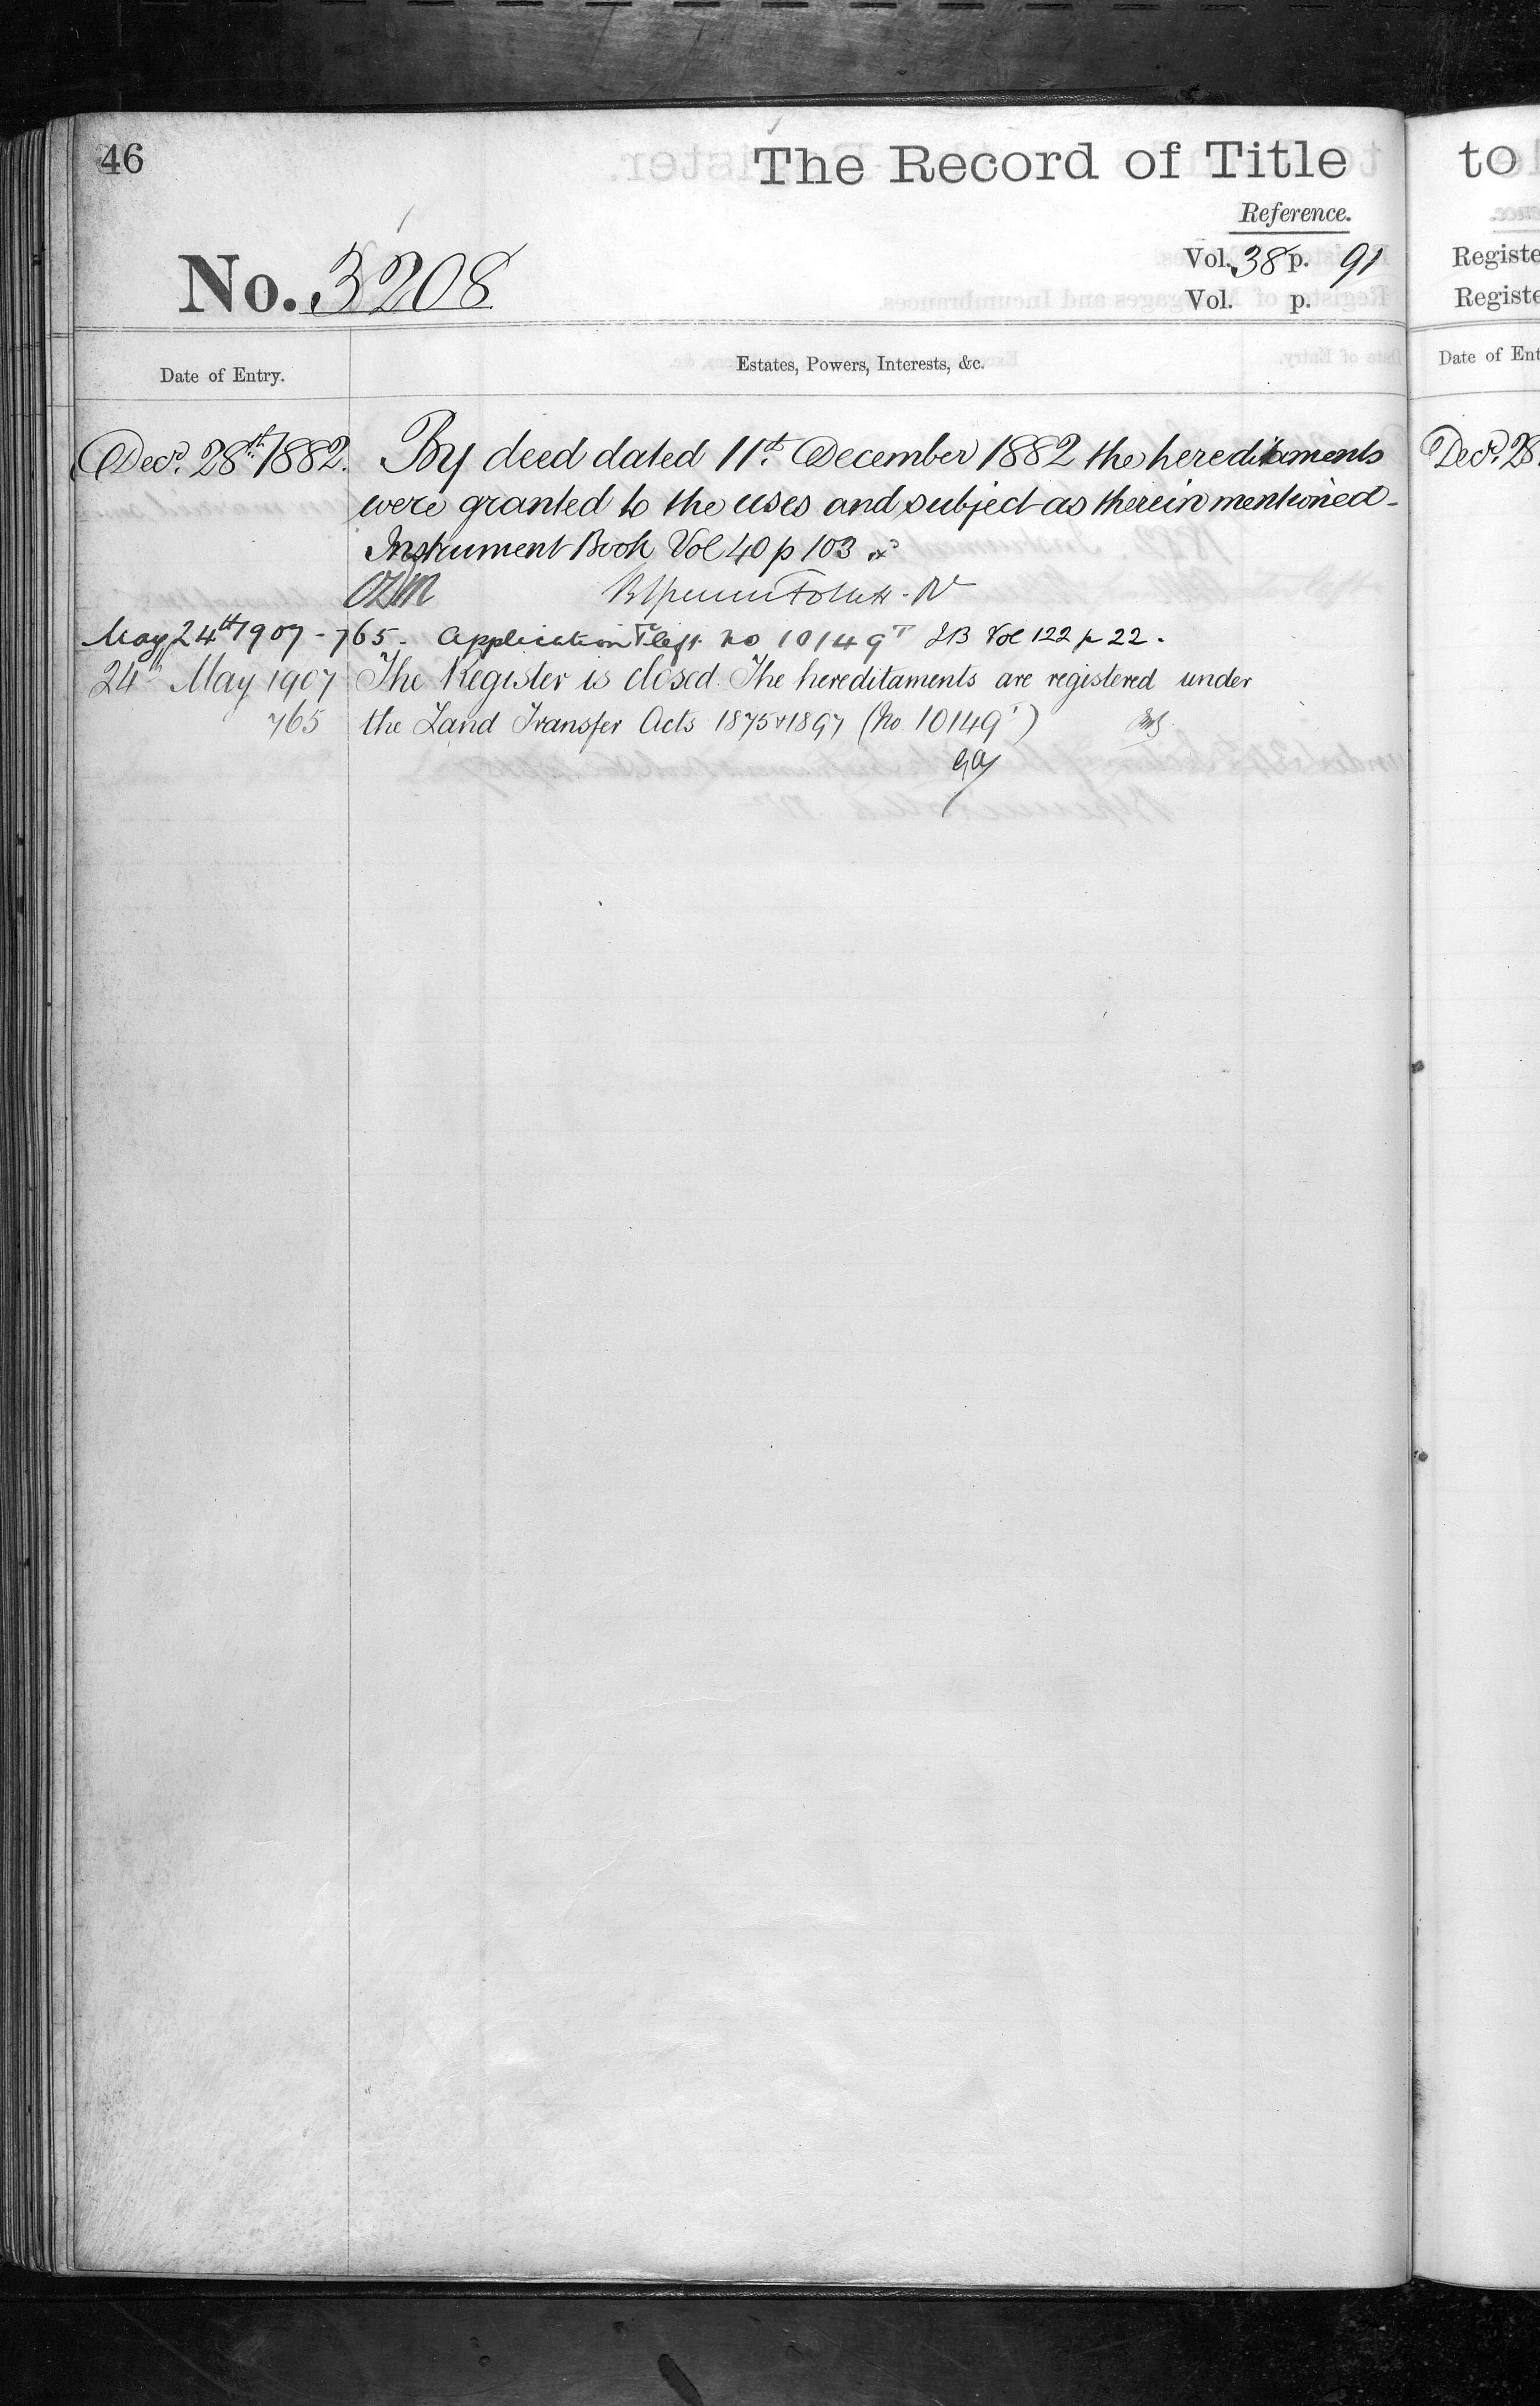 46
The Record of Title
Reference.
No. 3208
Vol. 38 p. 91
Vol. p.
Date of Entry.
Estates, Powers, Interests, &c.
Decr. 28th 1882. By deed dated 11th December 1882 the hereditaments
were granted to the uses and subject as therein mentioned -
Instrument Book Vol 40 p 103
May 24th 1907 - 765. Application left No 10149T IB Vol 122 p 22.
24th May 1907 The Register is closed. The hereditaments are registered under
765 the Land Transfer Acts 1875 & 1897 (No 10149T)
to
Registe
Registe
Date of Ent
Decr. 28